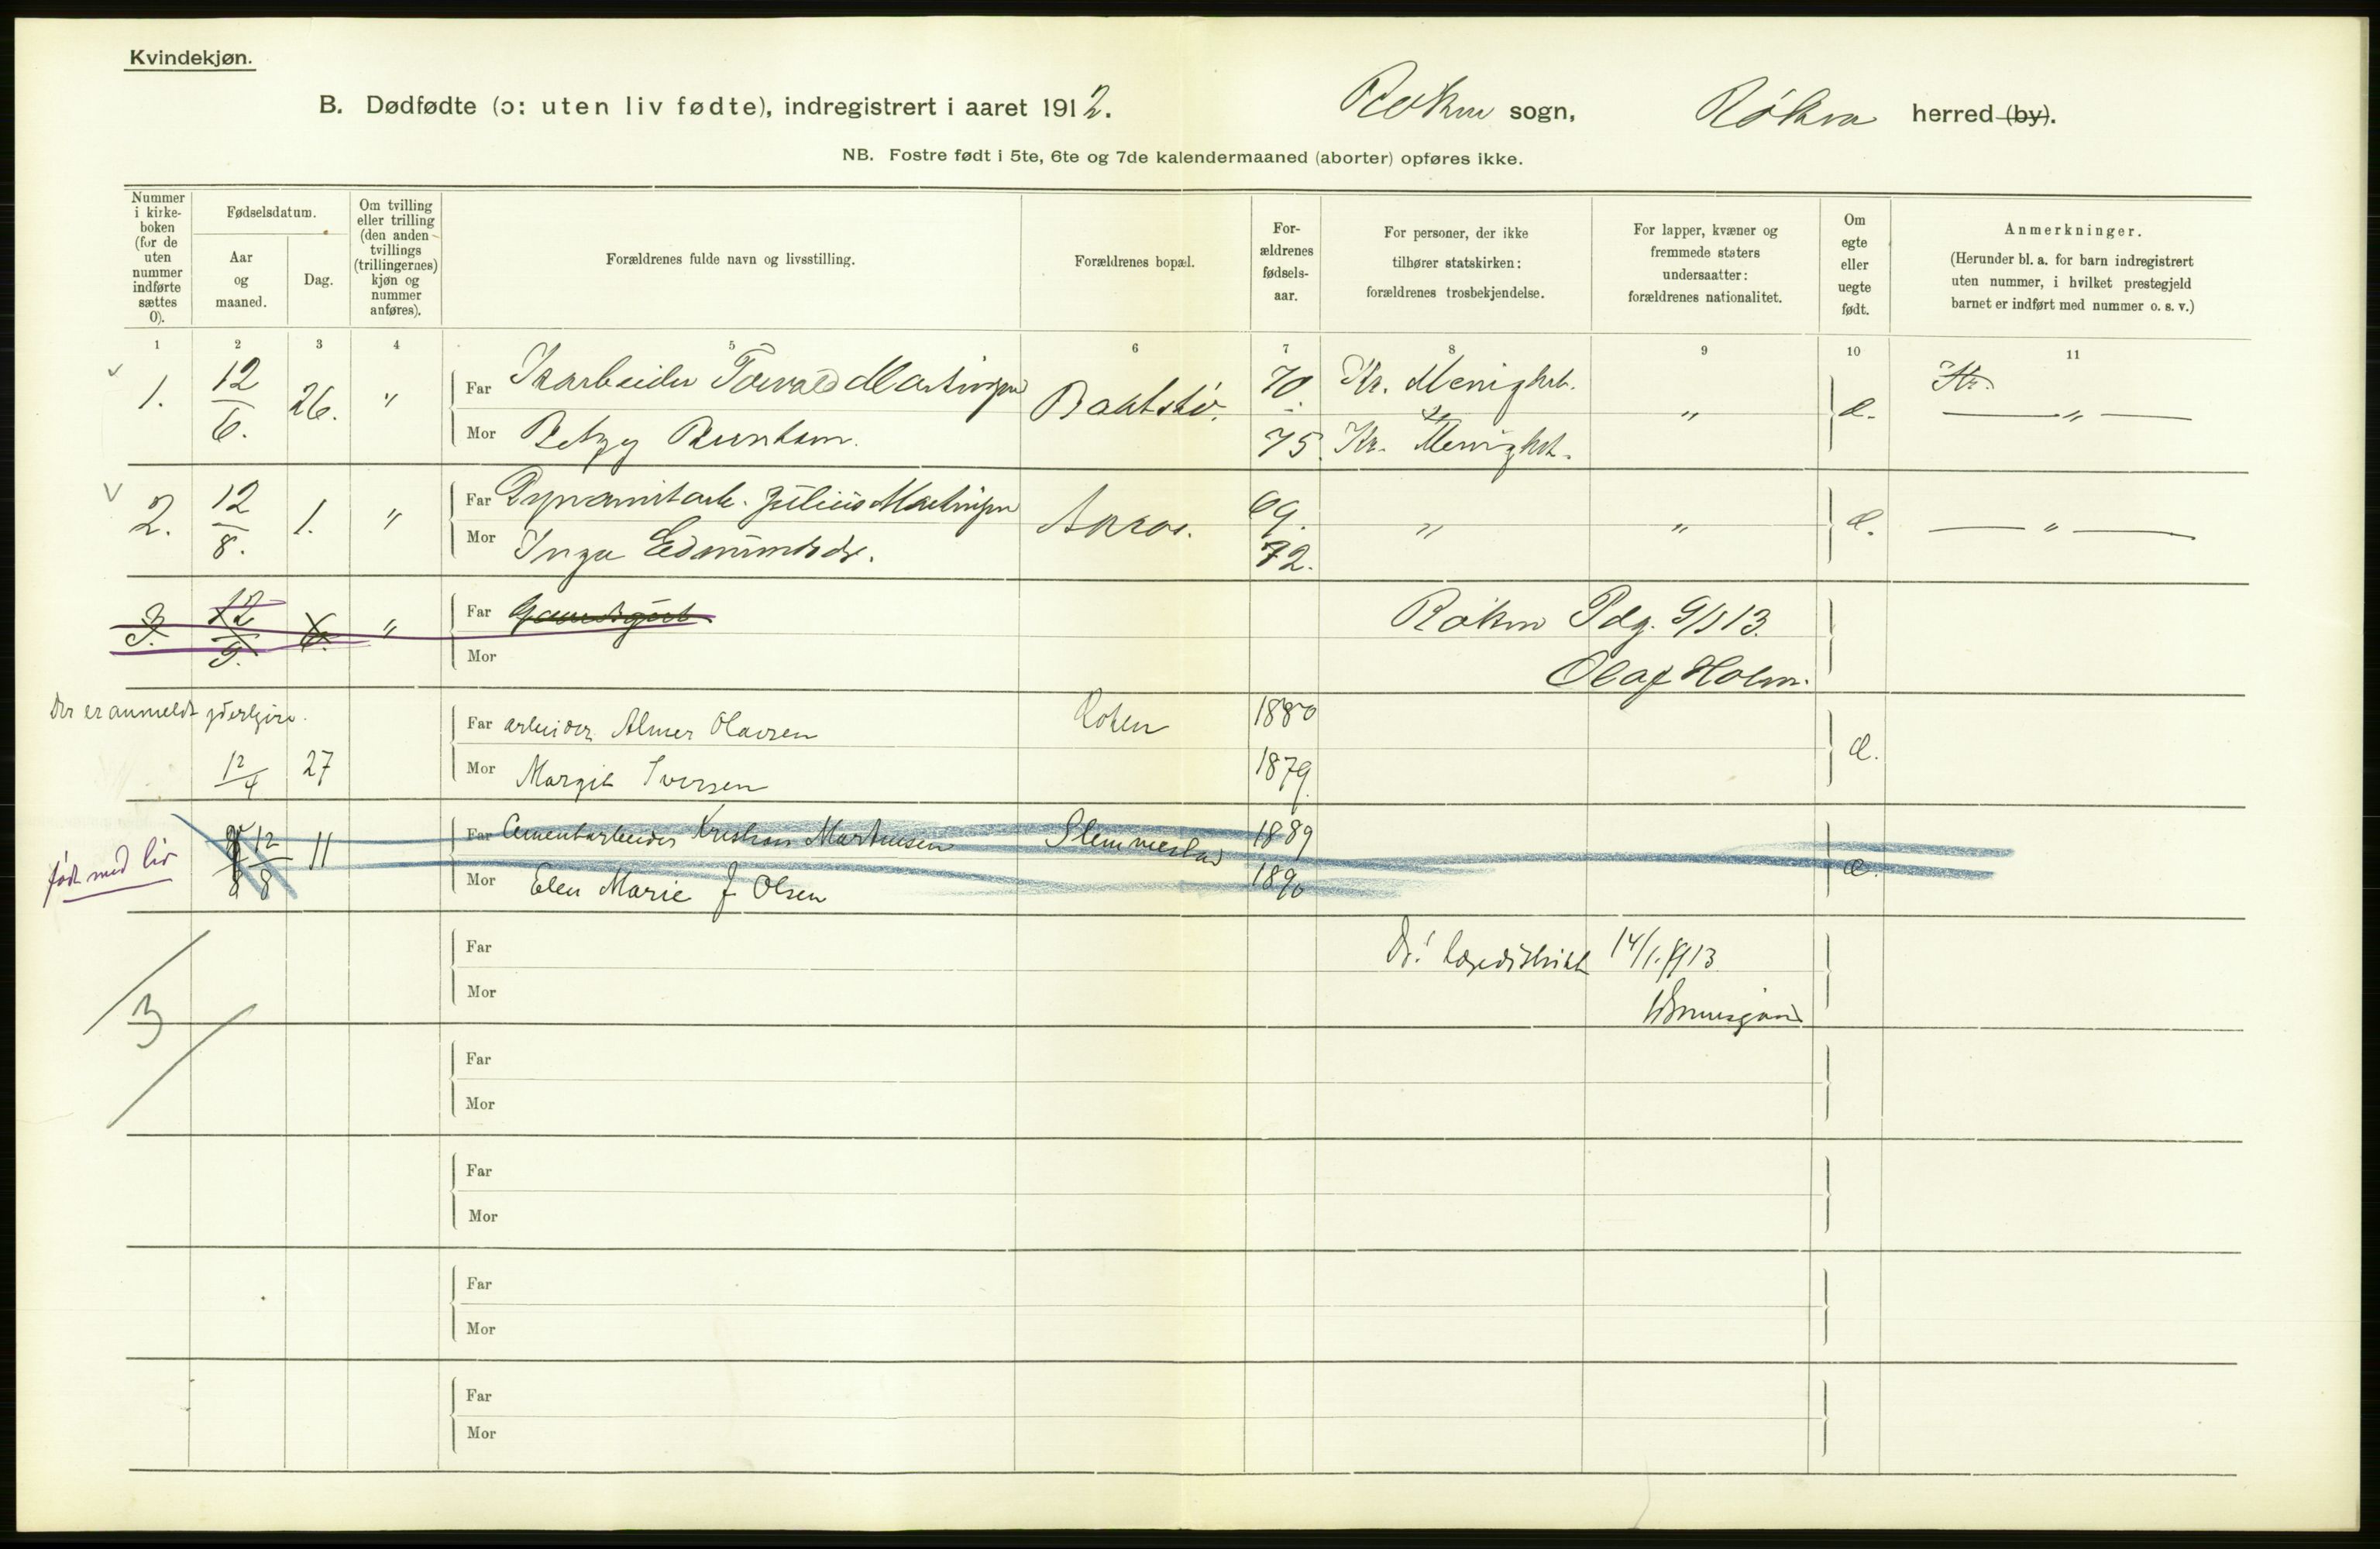 Kvindekjøn.
B. Dødfødte (ɔ: uten liv fødte), indregistrert i aaret 1912. Røken sogn, Røken herred (by).
NB. Fostre født i 5te, 6te og 7de kalendermaaned (aborter) opføres ikke.
Nummer i kirkeboken (for de uten nummer indførte sættes 0).
Fødselsdatum.
Aar og maaned.
Dag.
Om tvilling eller trilling (den anden tvillings (trillingernes) kjøn og nummer anføres).
Forældrenes fulde navn og livsstilling.
Forældrenes bopæl.
Forældrenes fødselsaar.
For personer, der ikke tilhører statskirken: forældrenes trosbekjendelse.
For lapper, kvæner og fremmede staters undersaatter: forældrenes nationalitet.
Om egte eller uegte født.
Anmerkninger.
(Herunder bl. a. for barn indregistrert uten nummer, i hvilket prestegjeld barnet er indført med nummer o. s. v.)
1 2 3 4 5 6 7 8 9 10 11
1. 12/6. 26. " Far Isarbeider Torvald Martinsen 70. Kr. Menighet. " e. — " —
Mor Betzy 75. Kr. Menighet.
2. 12/8. 1. " Far Dynamitarb. Julius Martinsen Aaros. 69. " " e. — " —
Mor Inga Edmundsdr. 72.
3. 12/9. 6. " Far
Mor
Røken Pdg. 9/1 13.
Olaf Holm.
Der er anmeldt yderligere.
12/4 27 Far arbeider Almer Olavsen Røken 1880 e.
Mor Margit Iversen 1879
født med liv
12/8 11 Far Cementarbeider Kristian Martinsen Slemmestad 1889 e.
Mor Elen Marie J Olsen 1890
Far
Mor
Lægedistrikt 14/1 1913
3
Far
Mor
Far
Mor
Far
Mor
Far
Mor